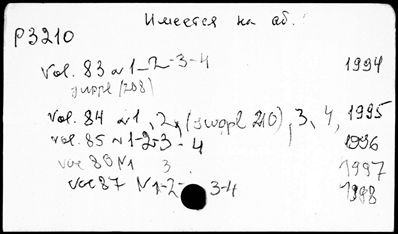 Имеется на аб.
P3210
Vol. 83 N 1-2-3-4 1994
suppl (208)
Vol. 84 N 1, 2, (suppl 210), 3, 4, 1995
vol. 85 N 1-2-3-4 1996
vol 86 N1 3 1997
vol 87 N 1-2- 3-4 1998